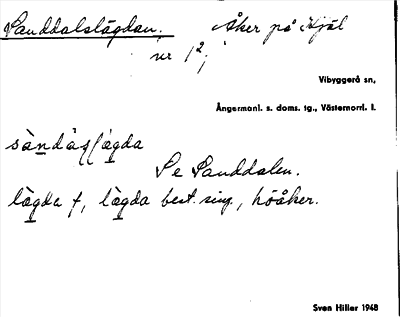 Sanddalslägdan. Åker på Hjäl
nr 1²,
Vibyggerå sn,
Ångermanl. s. doms. tg., Västernorrl. l.
Se Sanddalen.
lägda f, lägda best. sing., höåker.
Sven Hiller 1948